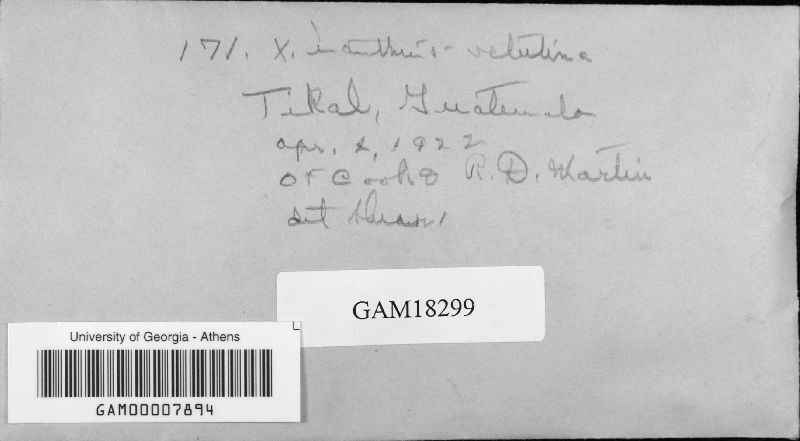 171. X. ianthinis-velutina
Tikal, Guatemala
Apr. 2, 1922
OF Cook & R. D. Martin
det
GAM18299
University of Georgia - Athens
GAM00007894